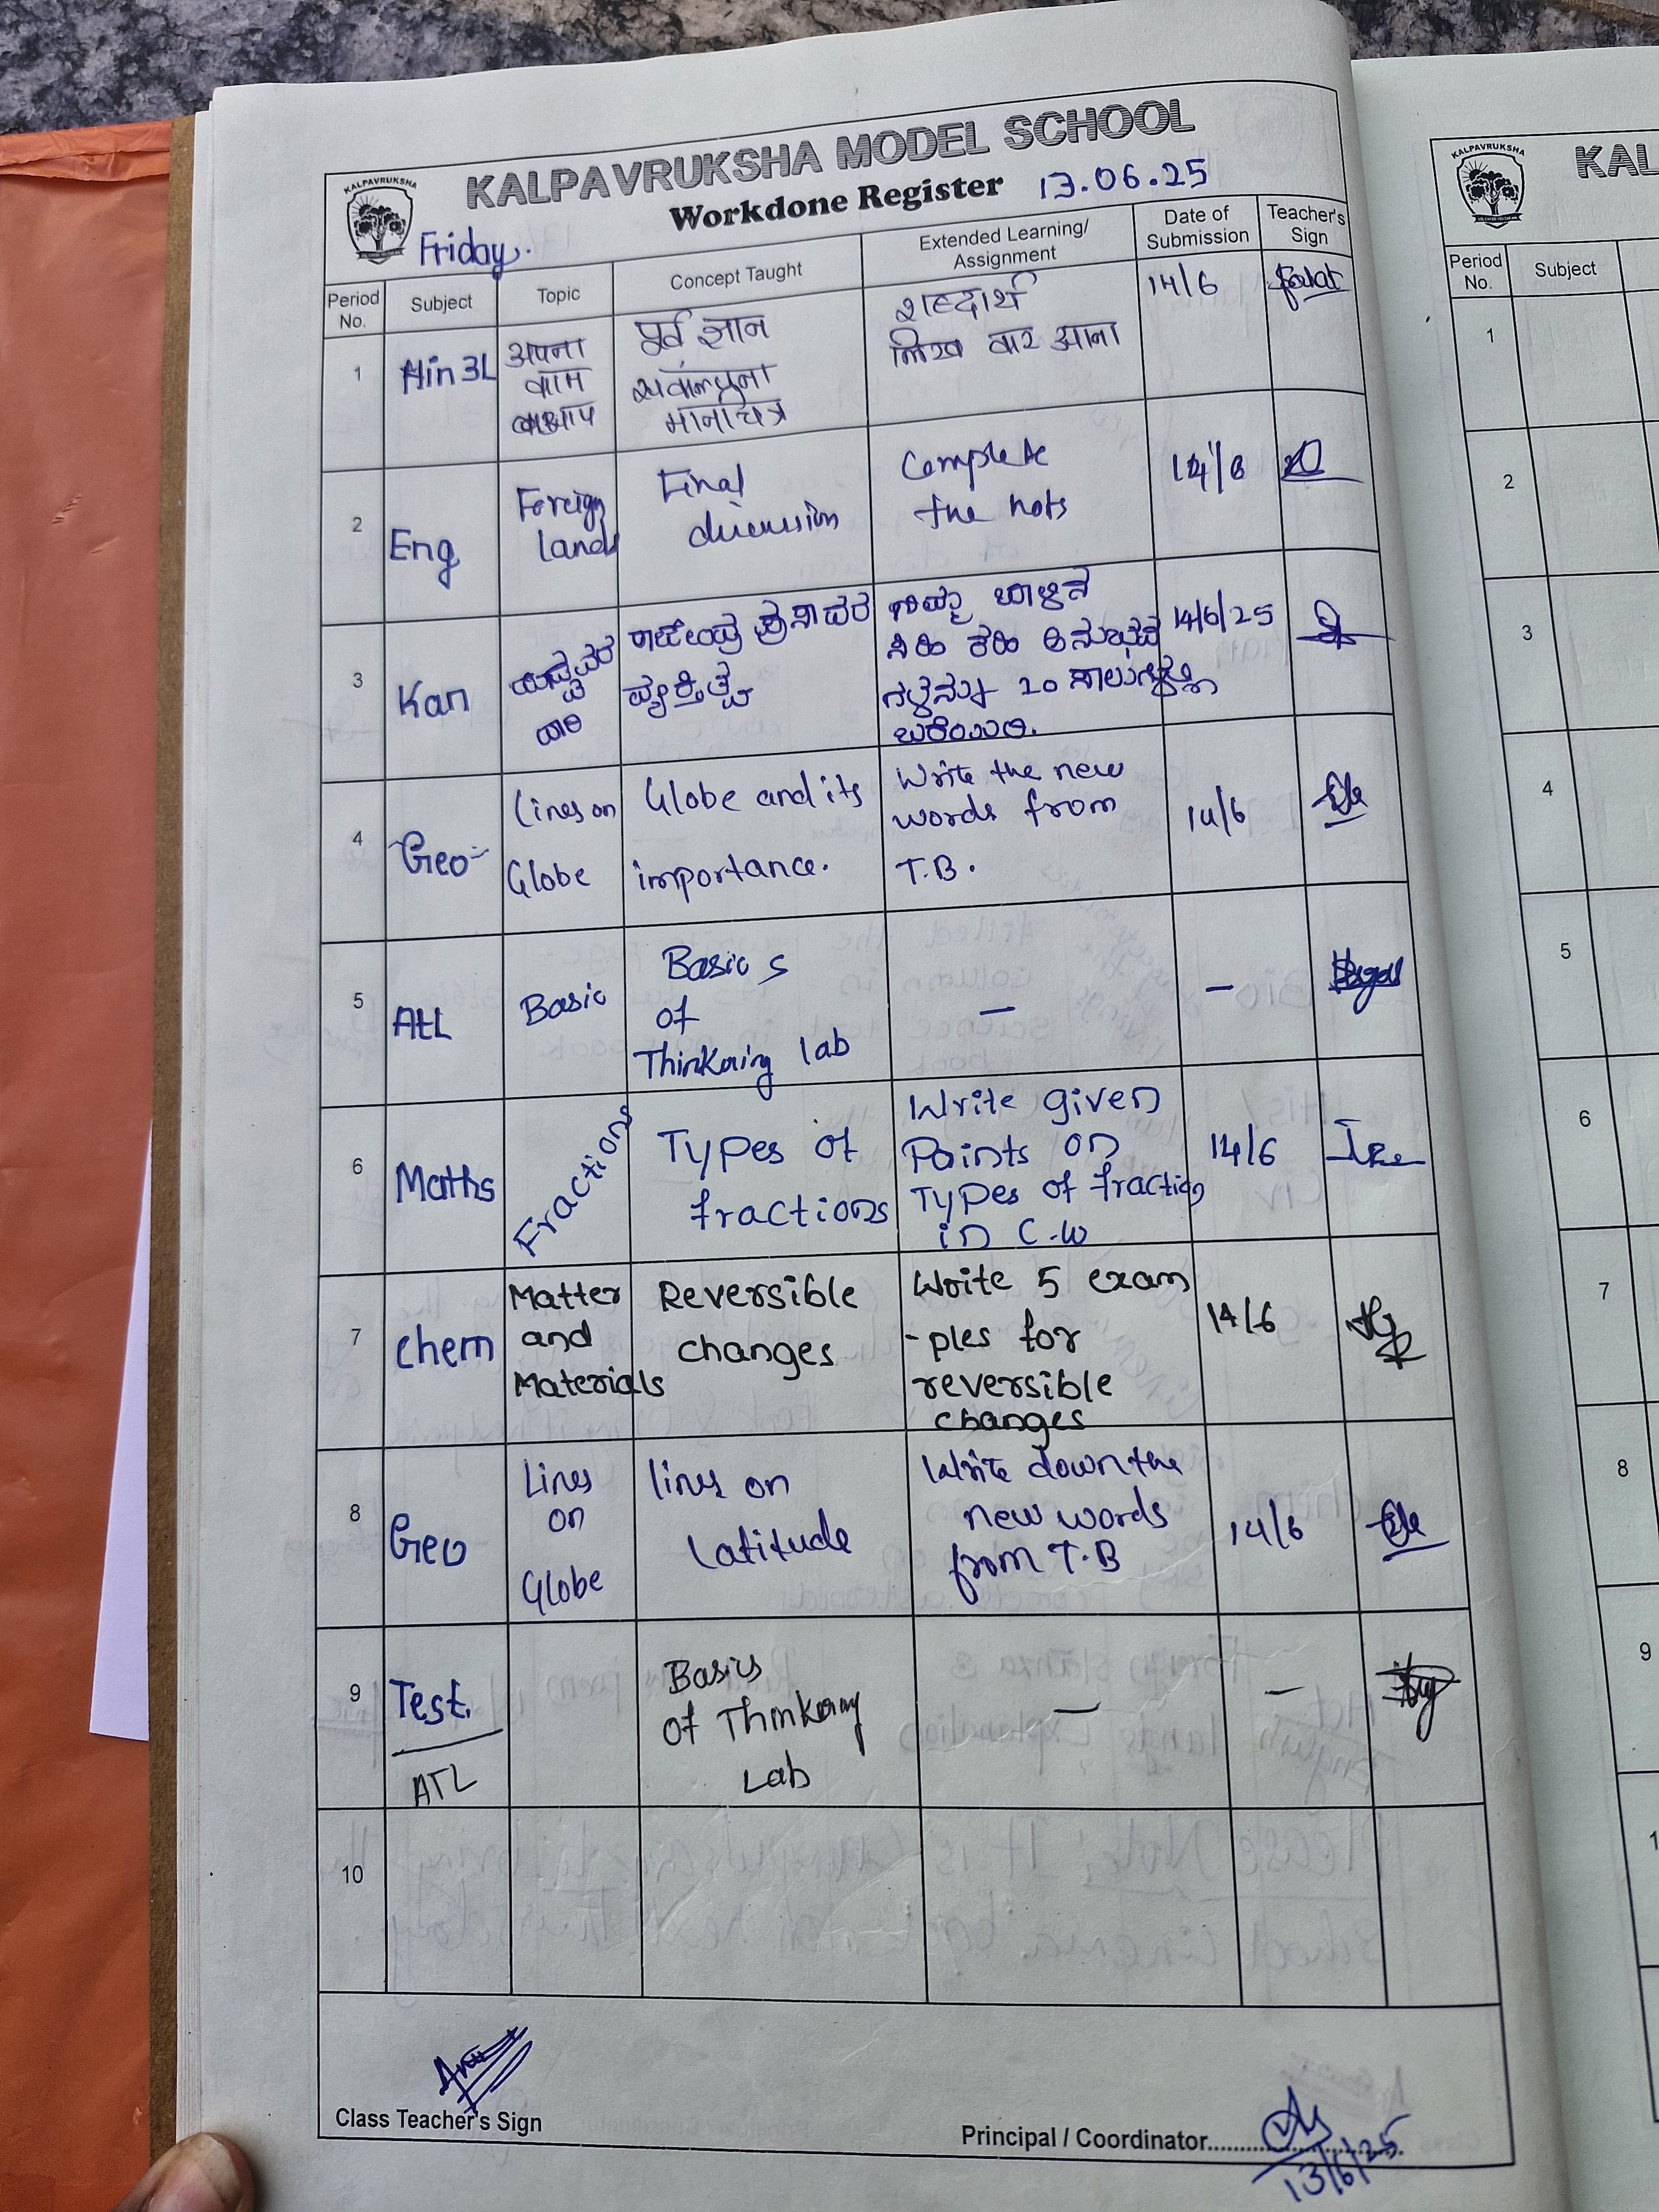 KALPAVRUKSHA MODEL SCHOOL
KALPAVRUKSHA
Workdone Register 13.06.25
Friday.
Period No.
Subject
Topic
Concept Taught
Extended Learning/ Assignment
Date of Submission
Teacher's Sign
1
Hin 3L
अपना
काम
पूर्व ज्ञान
मानचित्र
शब्दार्थ
लिख कर आना
14/6
2
Eng
Foreign
lands
Final
discussion
Complete
the nots
14/6
3
Kan
ವ್ಯಕ್ತಿತ್ವ
ನಿಮ್ಮ ಬಾಳಿನ
ಸಿಹಿ ಕಹಿ ಅನುಭವ
ಗಳನ್ನು 20 ಸಾಲುಗಳಲ್ಲಿ
ಬರೆಯಿರಿ.
14/6/25
4
Geo
Lines on
Globe
Globe and its
importance.
Write the new
words from
T.B.
14/6
5
AtL
Basic
Basics
of
Thinkering lab
—
—
6
Maths
Fractions
Types of
fractions
Write given
Points on
Types of fraction
in C.W
14/6
7
chem
Matter
and
Materials
Reversible
changes
Write 5 exam
-ples for
reversible
changes
14/6
8
Geo
Lines
on
Globe
lines on
Latitude
Write down the
new words
from T.B
14/6
9
Test.
ATL
Basics
of Thinkering
Lab
—
—
10
Class Teacher's Sign
Principal / Coordinator
13/6/25
KALPAVRUKSHA
KAL
Period No.
Subject
1
2
3
4
5
6
7
8
9